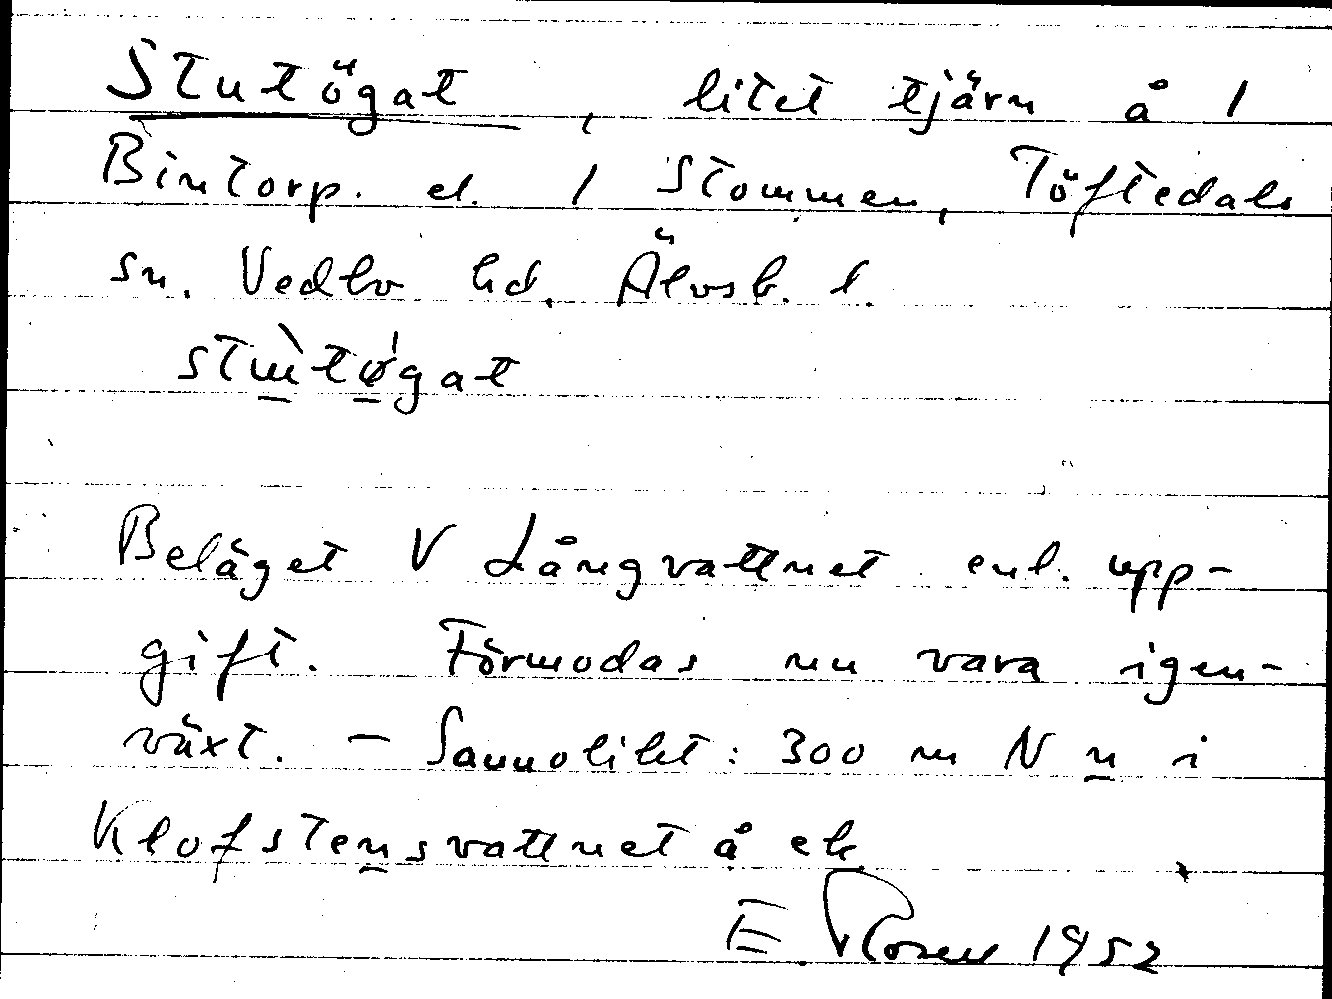 Stutögat, litet tjärn å 1
Bintorp. el. 1 Stommen, Töftedals
sn. Vedbo hd. Älvsb. l.
stù̱tǿ̱gat
Beläget V Långvattnet enl. upp-
gift. Förmodas nu vara igen-
växt. - Sannolikt: 300 m N n̲ i
Klofstens̱vattnet å ek.
E. Rosell 1952